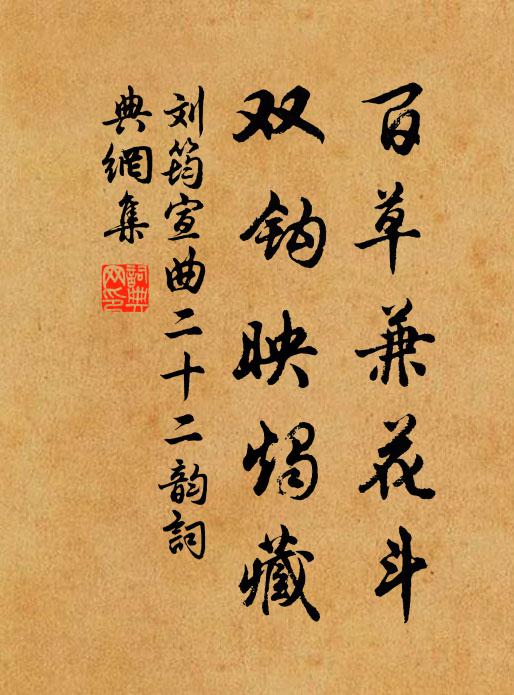 百草兼花斗
双钩映烛藏
刘筠宣曲二十二韵詞
典網集
詞典网印